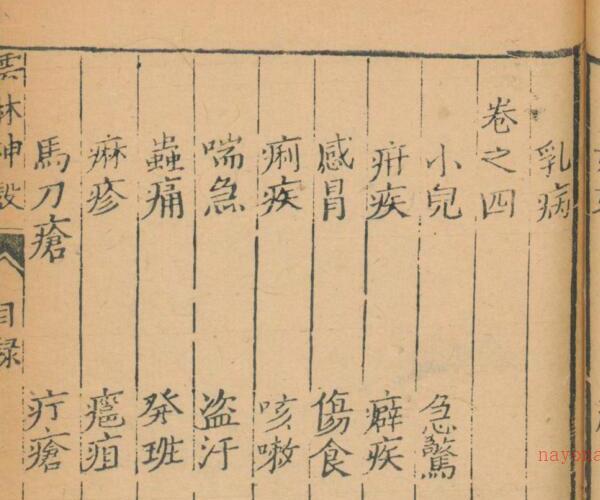 乳病
卷之四
小兒 急驚
疳疾 癖疾
感冐 傷食
痢疾 咳嗽
喘急 盗汗
蟲痛 發班
痳疹 癰疽
馬刀瘡 疔瘡
雲林神彀 目録
nayona